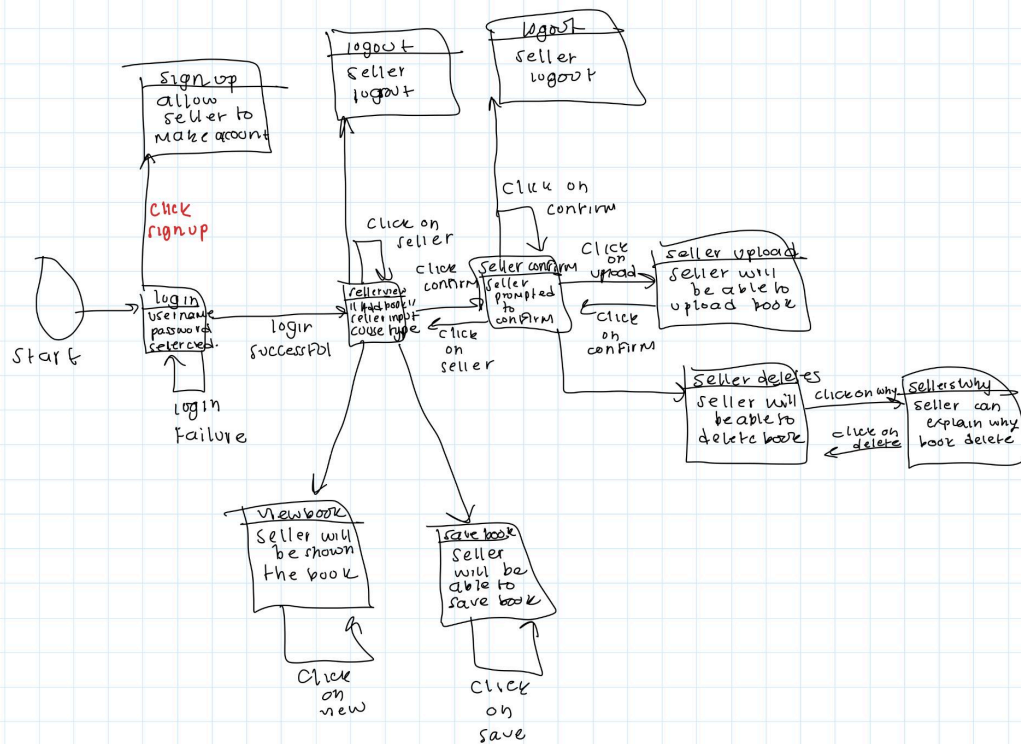 logout
seller
logout
logout
seller
logout
sign up
allow
seller to
make acount
click
signup
Click on
seller
Click on
confirm
Start
login
username
password
selected.
login
successful
login
Failure
sellerview
"Add book"
seller input
Click
confirm
Click
on
seller
seller confirm
seller
prompted
to
confirm
Click
on
upload
Click
on
confirm
seller upload
seller will
be able to
upload book
seller deletes
seller will
be able to
delete book
click on why
click on
delete
sellers why
seller can
explain why
book delete
view book
seller will
be shown
the book
Click
on
view
save book
seller
will be
able to
save book
Click
on
save